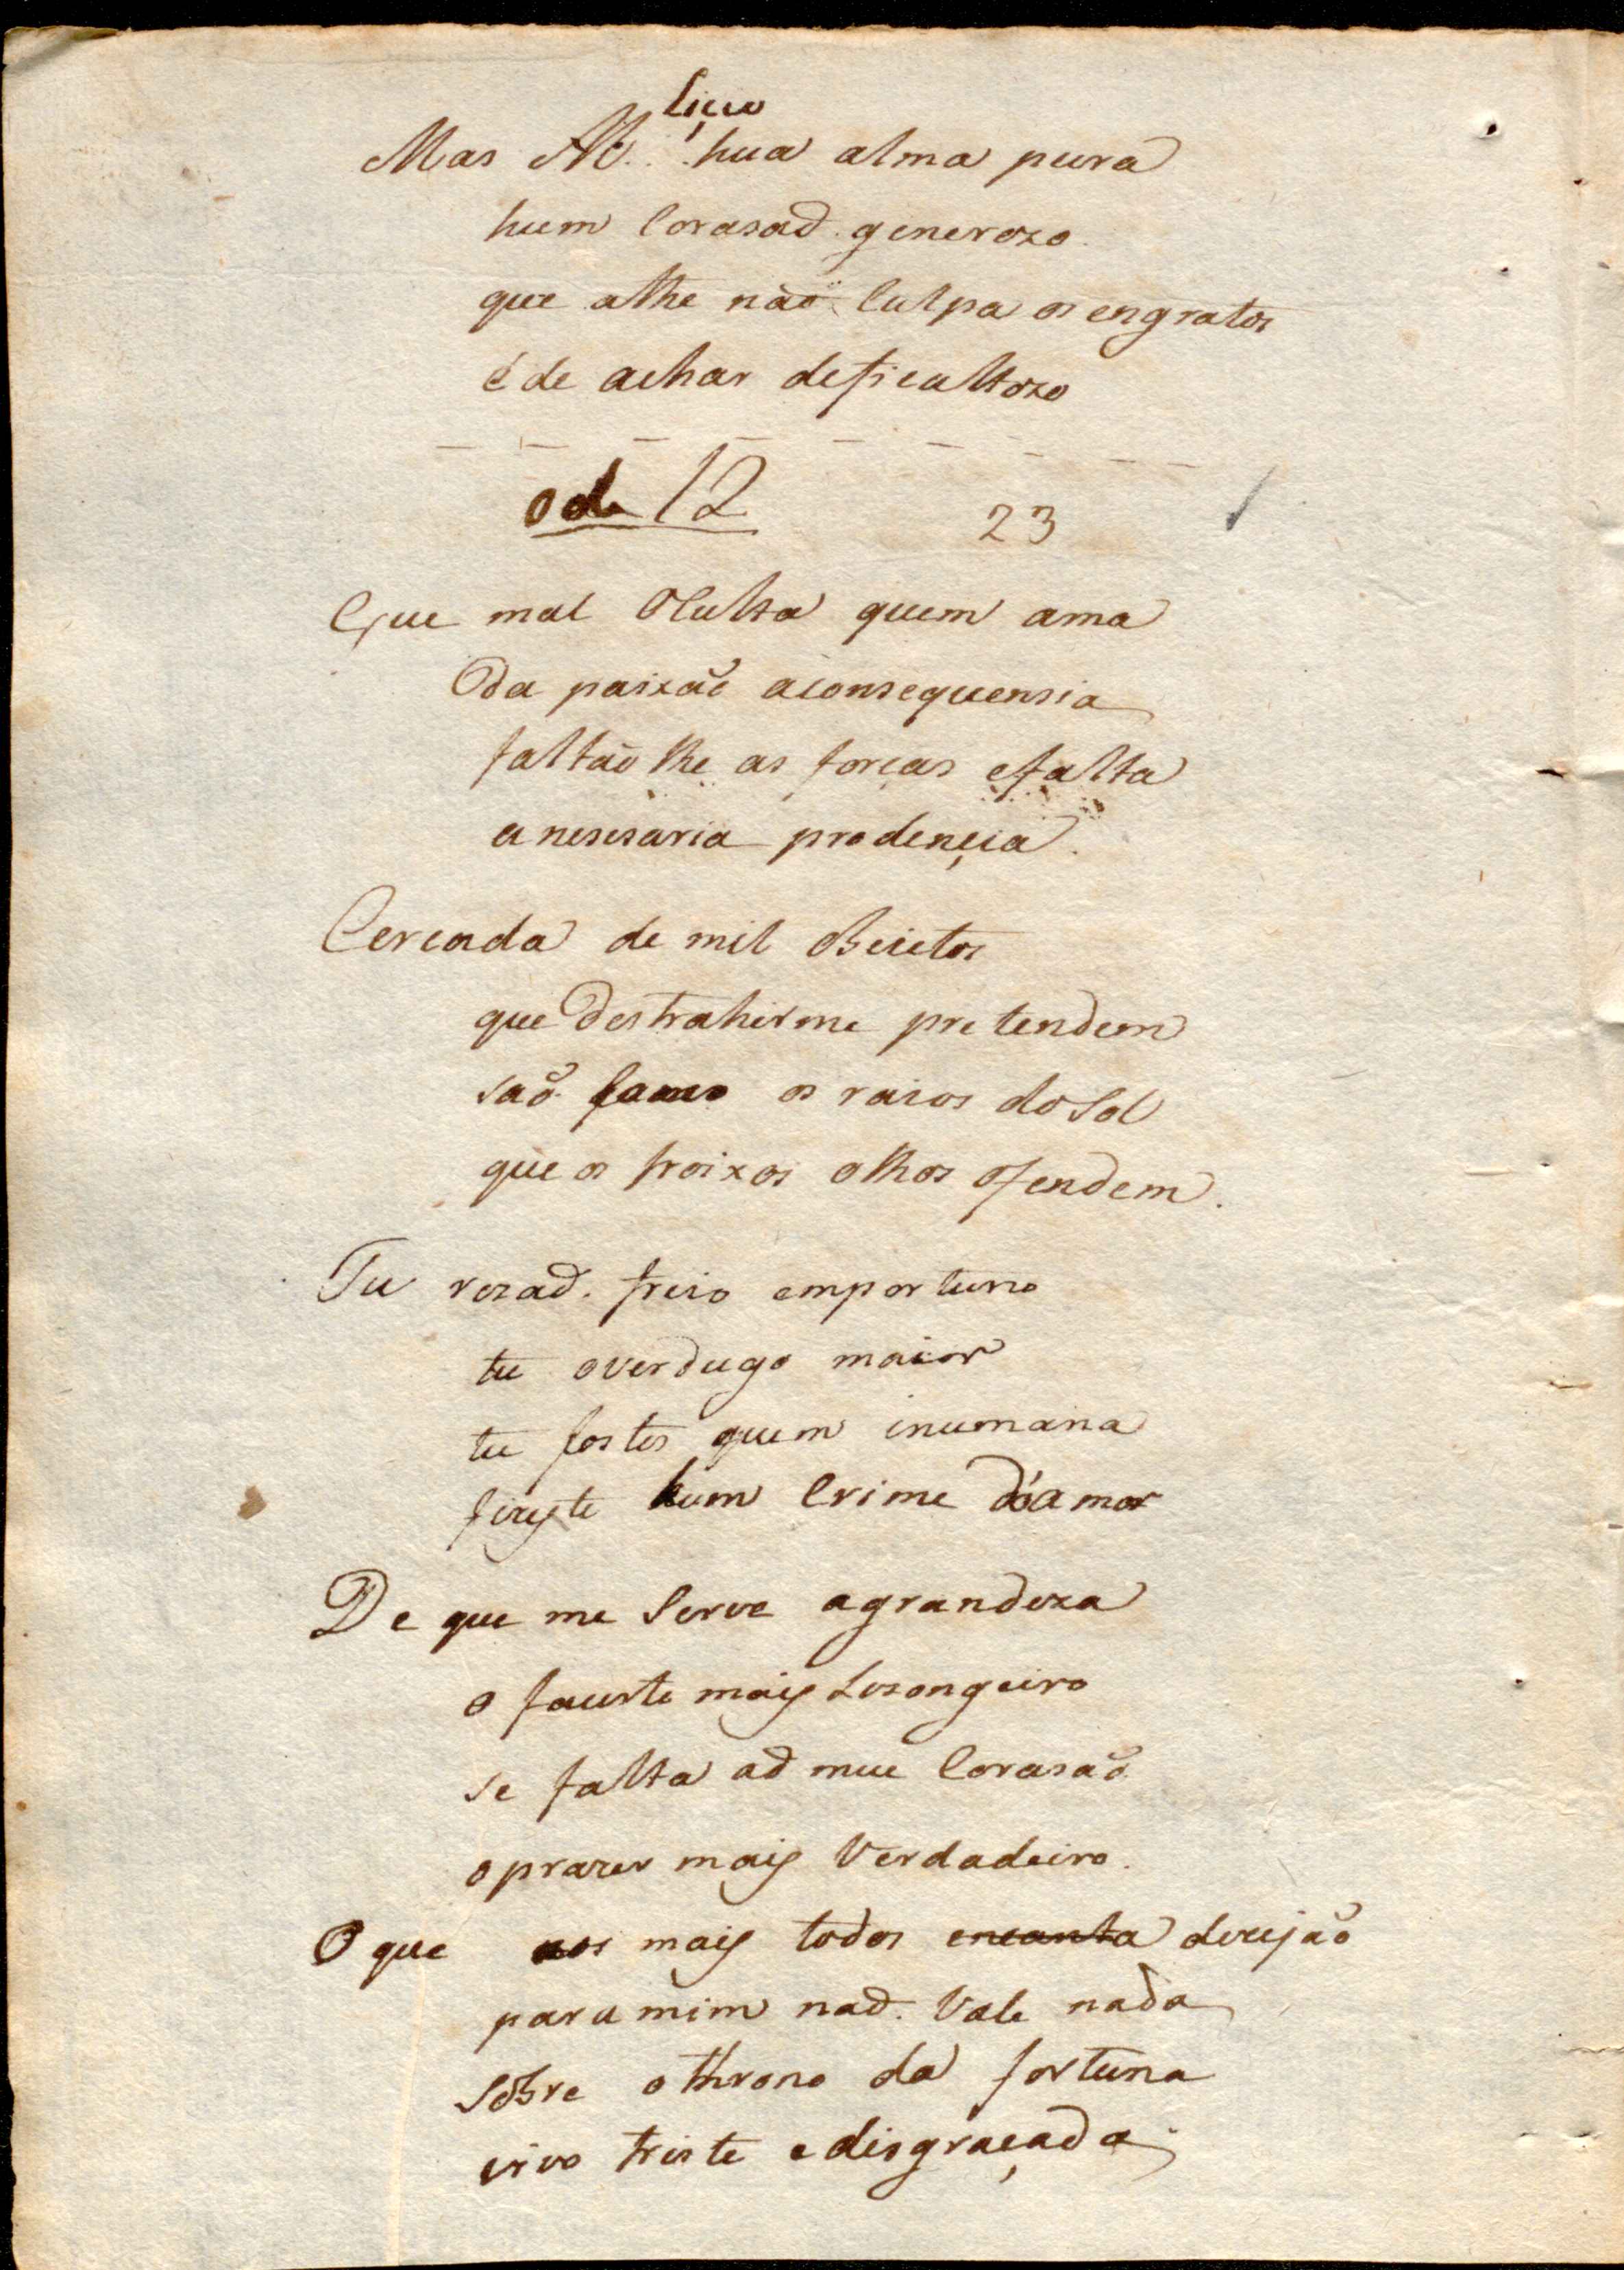 Liçio
Mas Ah.. hua alma pura
hum Corasaõ generozo
que athe não Culpa os engratos
é de achar deficultozo
ode 12
23
Que mal Oculta quem ama
Da paixaõ aconsequensia
faltaõ lhe as forças efalta
a nesesaria prodençia.
Cercada de mil Obeictos
que Destrahirme pretendem
saõ como os raios do Sol
que os froixos olhos ofendem.
Tu rezaõ. freio emportuno
tu overdugo maior
tu fostes quem inumana
fizeste hum Crime do Amor
De que me Serve agrandeza
o fausto mais Lizongeiro
se falta aõ meu Corasaõ
oprazer mais Verdadeiro.
O que mais todos encanta dezejaõ
para mim naõ. Vale nada
Sobre othrono da fortuna
vivo triste edisgraçada